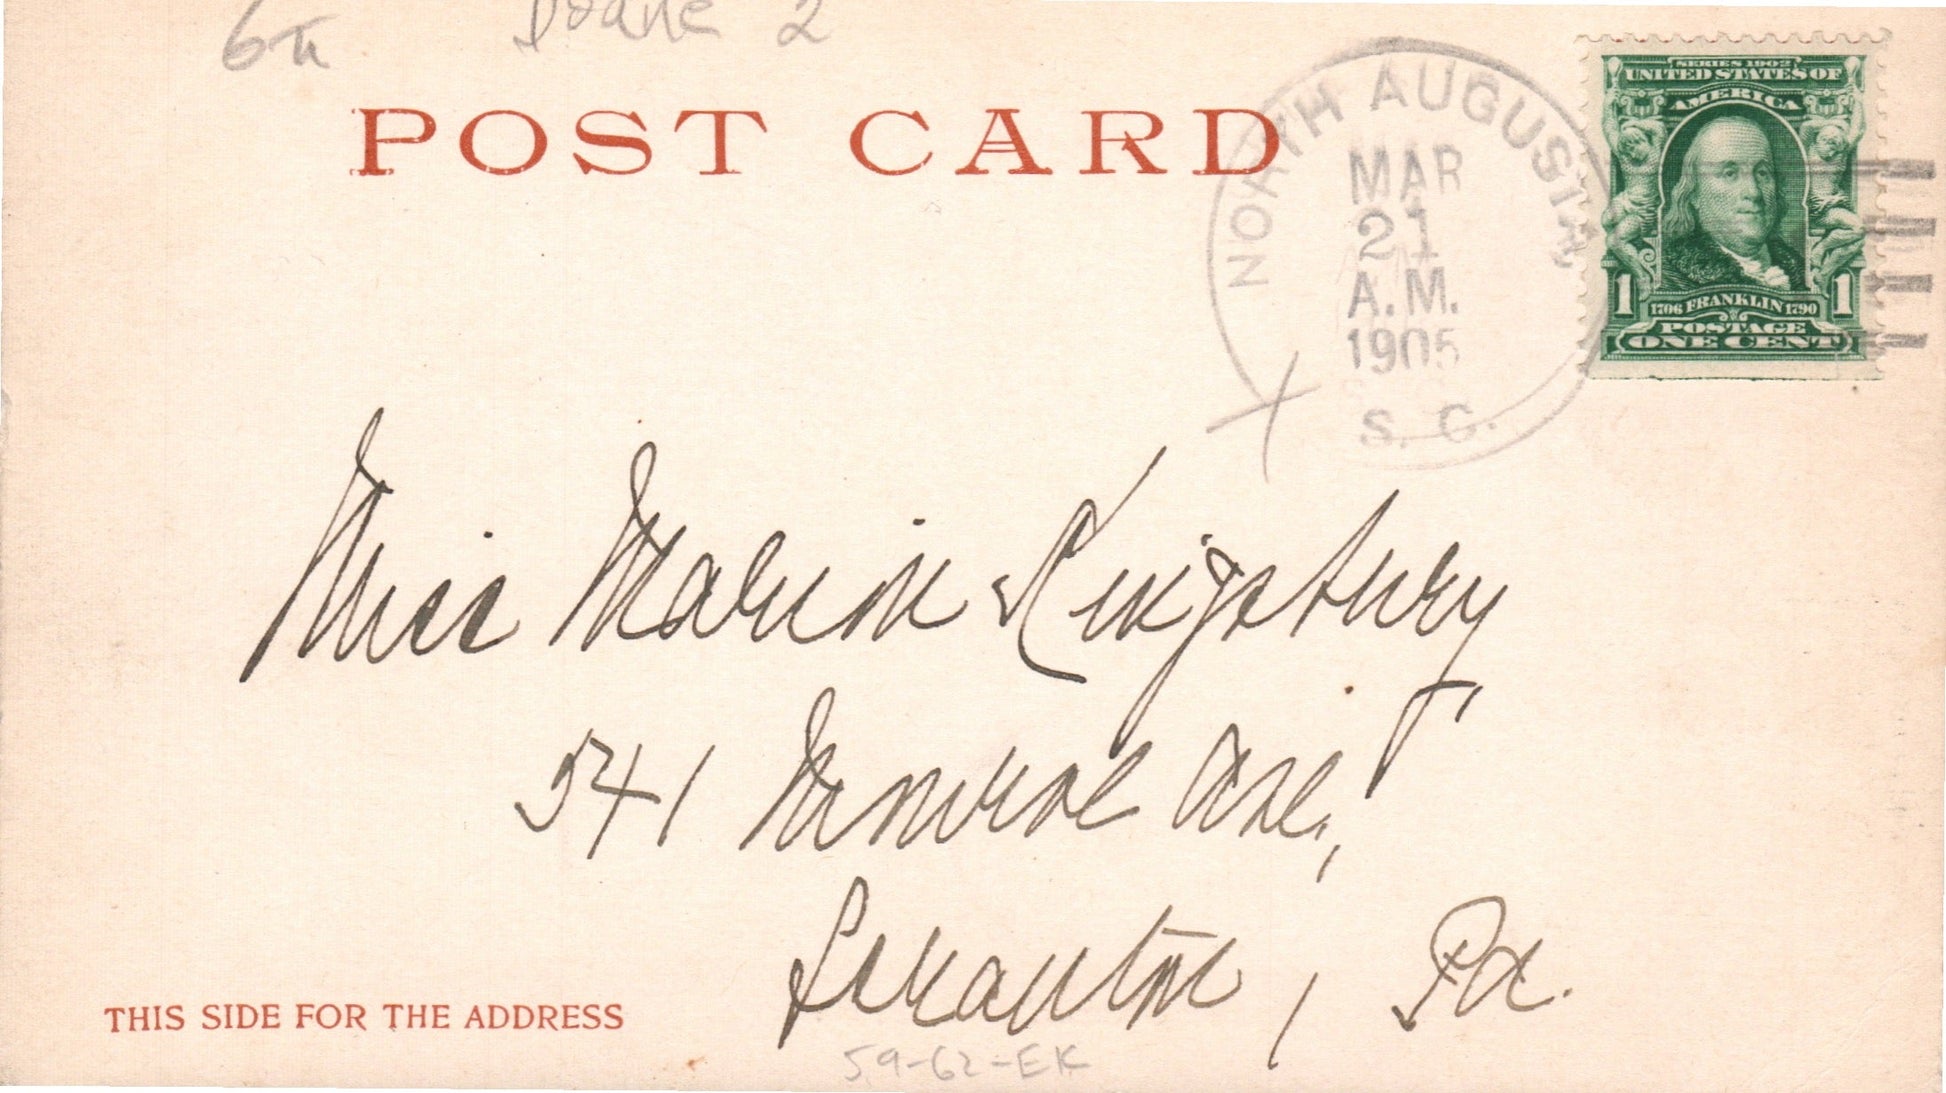 Doane 2
POST CARD
NORTH AUGUSTA,
MAR
21
A.M.
1905
S. C.
SERIES 1902
UNITED STATES OF
AMERICA
1 1706 FRANKLIN 1790 1
POSTAGE
ONE CENT
Miss Marion Kingsbury
541 Monroe Ave,
Scranton, Pa.
THIS SIDE FOR THE ADDRESS
59-62-EK